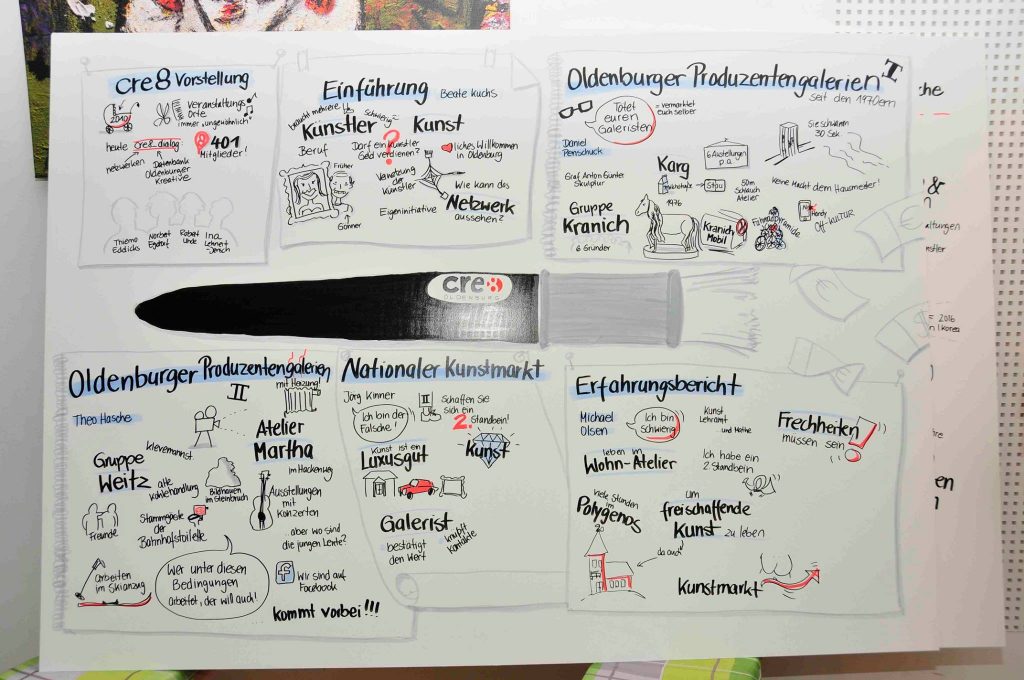 cre8 Vorstellung
2010
Veranstaltungs
Orte
immer "ungewöhnlich"
heute cre8 dialog
401
Mitglieder!
netzwerken
Datenbank
Oldenburger
Kreative
Thiemo
Eddicks
Norbert
Egdorf
Robert
Unde
Ina
Lehnert
Jenisch
Einführung Beate Kuchs
braucht mehrere
Künstler
Beruf
Schwierig
Kunst
Darf ein Künstler
Geld verdienen?
?
liches Willkommen
in Oldenburg
Früher
Vernetzung
der
Künstler
Gönner
Eigeninitiative
Wie kann das
Netzwerk
aussehen?
Oldenburger Produzentengalerien I
seit den 1970ern
Tötet
euren
Galeristen
= vermarktet
euch selber
Daniel
Penschuck
Sie schwamm
30 Sek.
6 Ausstellungen
p.a.
Karg
Graf Anton Günter
Skulptur
Milchstraße
Stau
50m
Schlauch
Atelier
Keine Macht dem Hausmeister!
Gruppe
Kranich
6 Gründer
1976
Kranich
Mobil
Fahrradpyramide
No
Handy
Off-KULTUR
cre8
OLDENBURG
Oldenburger Produzentengalerien
II
mit Heizung!
Theo Hasche
Atelier
Martha
im Hackenweg
Klevemannst.
Gruppe
Weitz
alte
Kohlehandlung
Bildhauen
im Steinbruch
Freunde
Stammgäste
der
Bahnhofstoilette
Ausstellungen
mit
Konzerten
aber wo sind
die jungen Leute?
Arbeiten
im Skianzug
Wer unter diesen
Bedingungen
arbeitet, der will auch!
f
Wir sind auf
Facebook
kommt vorbei!!!
Nationaler Kunstmarkt
Jörg Kinner
Ich bin der
Falsche!
II
Schaffen Sie
sich ein
2. Standbein!
Kunst ist ein
Luxusgut
Kunst
Galerist
bestätigt
den Wert
knüpft
Kontakte
Erfahrungsbericht
Michael
Olsen
Ich bin
schwierig
Kunst
Lehramt
und Mathe
Frechheiten
müssen sein!
leben im
Wohn-Atelier
Ich habe ein
2. Standbein
viele Stunden
im
Polygenos
um
freischaffende
Kunst zu leben
da auch
Kunstmarkt
che
&
altungen
nstler
= 2016
n Korea
hre
en